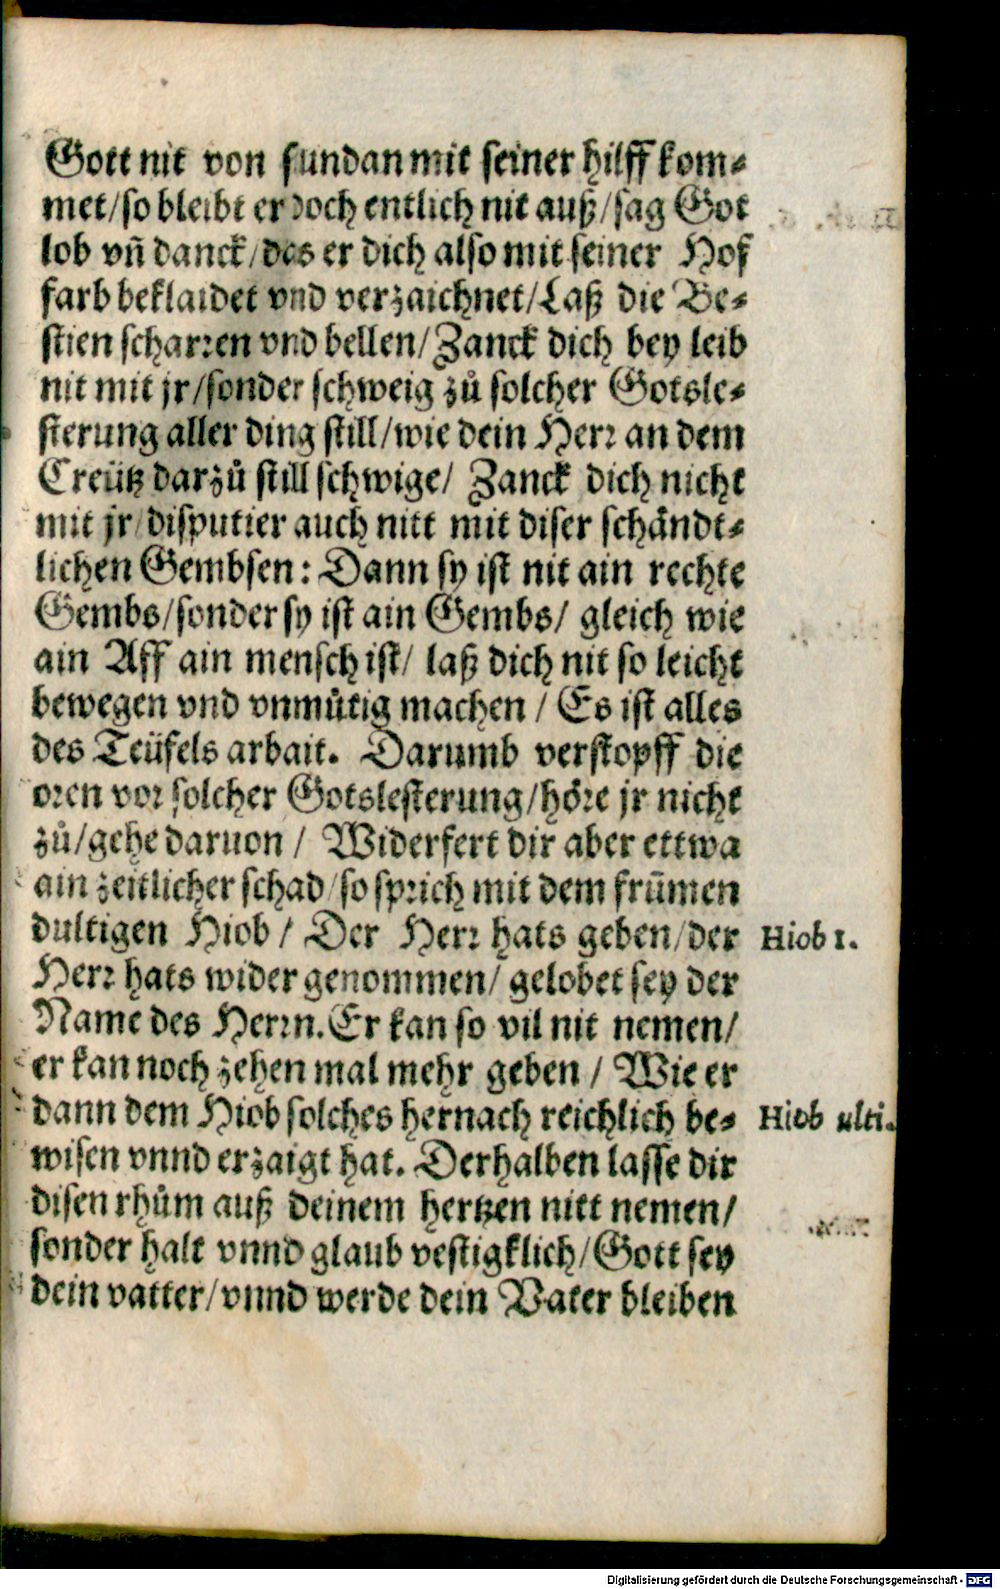 Gott nit von stundan mit seiner hilff kom⸗
met/so bleibt er doch entlich nit auß/sag Got
lob vñ danck/das er dich also mit seiner Hof
farb beklaidet vnd verzaichnet/Laß die Be⸗
stien scharren vnd bellen/Zanck dich bey leib
nit mit jr/sonder schweig zů solcher Gotsle⸗
sterung aller ding still/wie dein Herr an dem
Creütz darzů still schwige/ Zanck dich nicht
mit jr/disputier auch nitt mit diser schändt⸗
lichen Gembsen: Dann sy ist nit ain rechte
Gembs/sonder sy ist ain Gembs/ gleich wie
ain Aff ain mensch ist/ laß dich nit so leicht
bewegen vnd vnmůtig machen / Es ist alles
des Teüfels arbait. Darumb verstopff die
oren vor solcher Gotslesterung/höre jr nicht
zů/gehe daruon / Widerfert dir aber ettwa
ain zeitlicher schad/so sprich mit dem frum̃en
dultigen Hiob / Der Herr hats geben/der
Hiob 1.
Herr hats wider genommen/ gelobet sey der
Name des Herrn.Er kan so vil nit nemen/
er kan noch zehen mal mehr geben / Wie er
dann dem Hiob solches hernach reichlich be⸗
Hiob ulti.
wisen vnnd erzaigt hat. Derhalben lasse dir
disen rhům auß deinem hertzen nitt nemen/
sonder halt vnnd glaub vestigklich/Gott sey
dein vatter/vnnd werde dein Vater bleiben
Digitalisierung gefördert durch die Deutsche Forschungsgemeinschaft - DFG